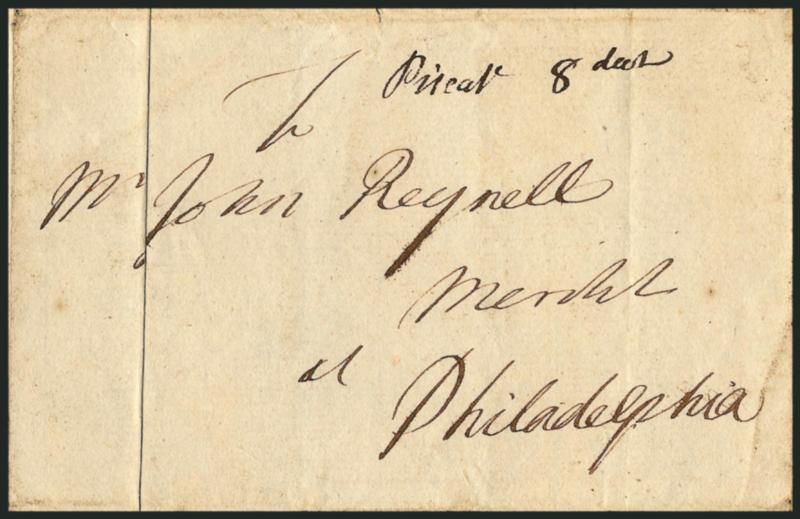 Piscat 8 dwt
To
Mr John Reynell
Mercht
at
Philadelphia